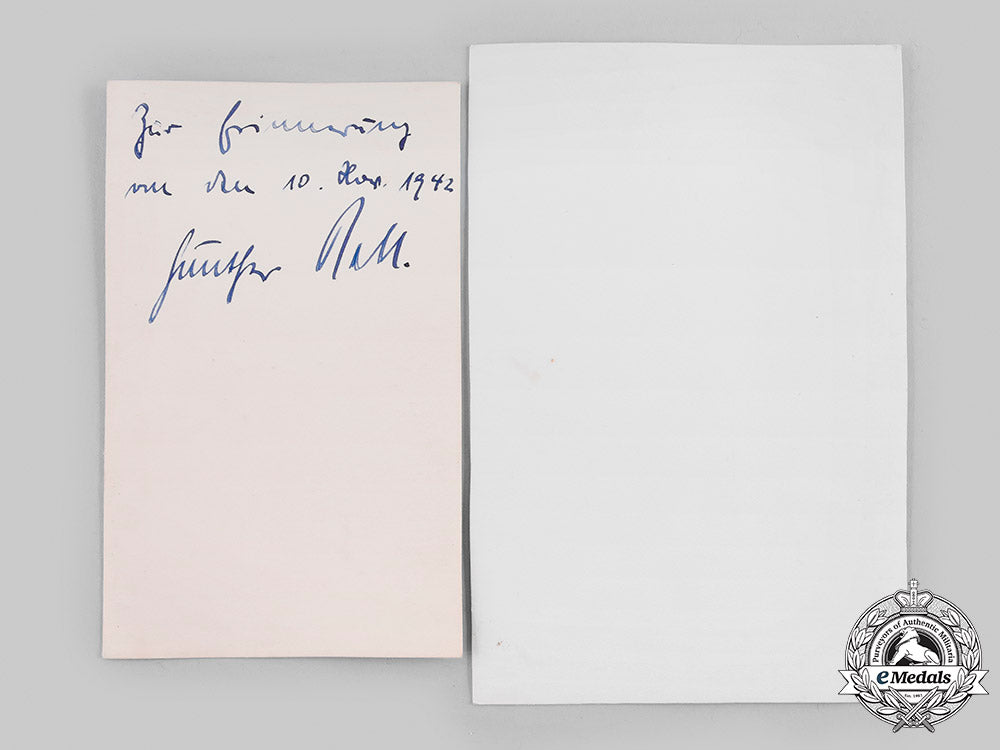 Zur Erinnerung
von den 10. Nov. 1942
Günther Rall.
Purveyors of Authentic Militaria
eMedals